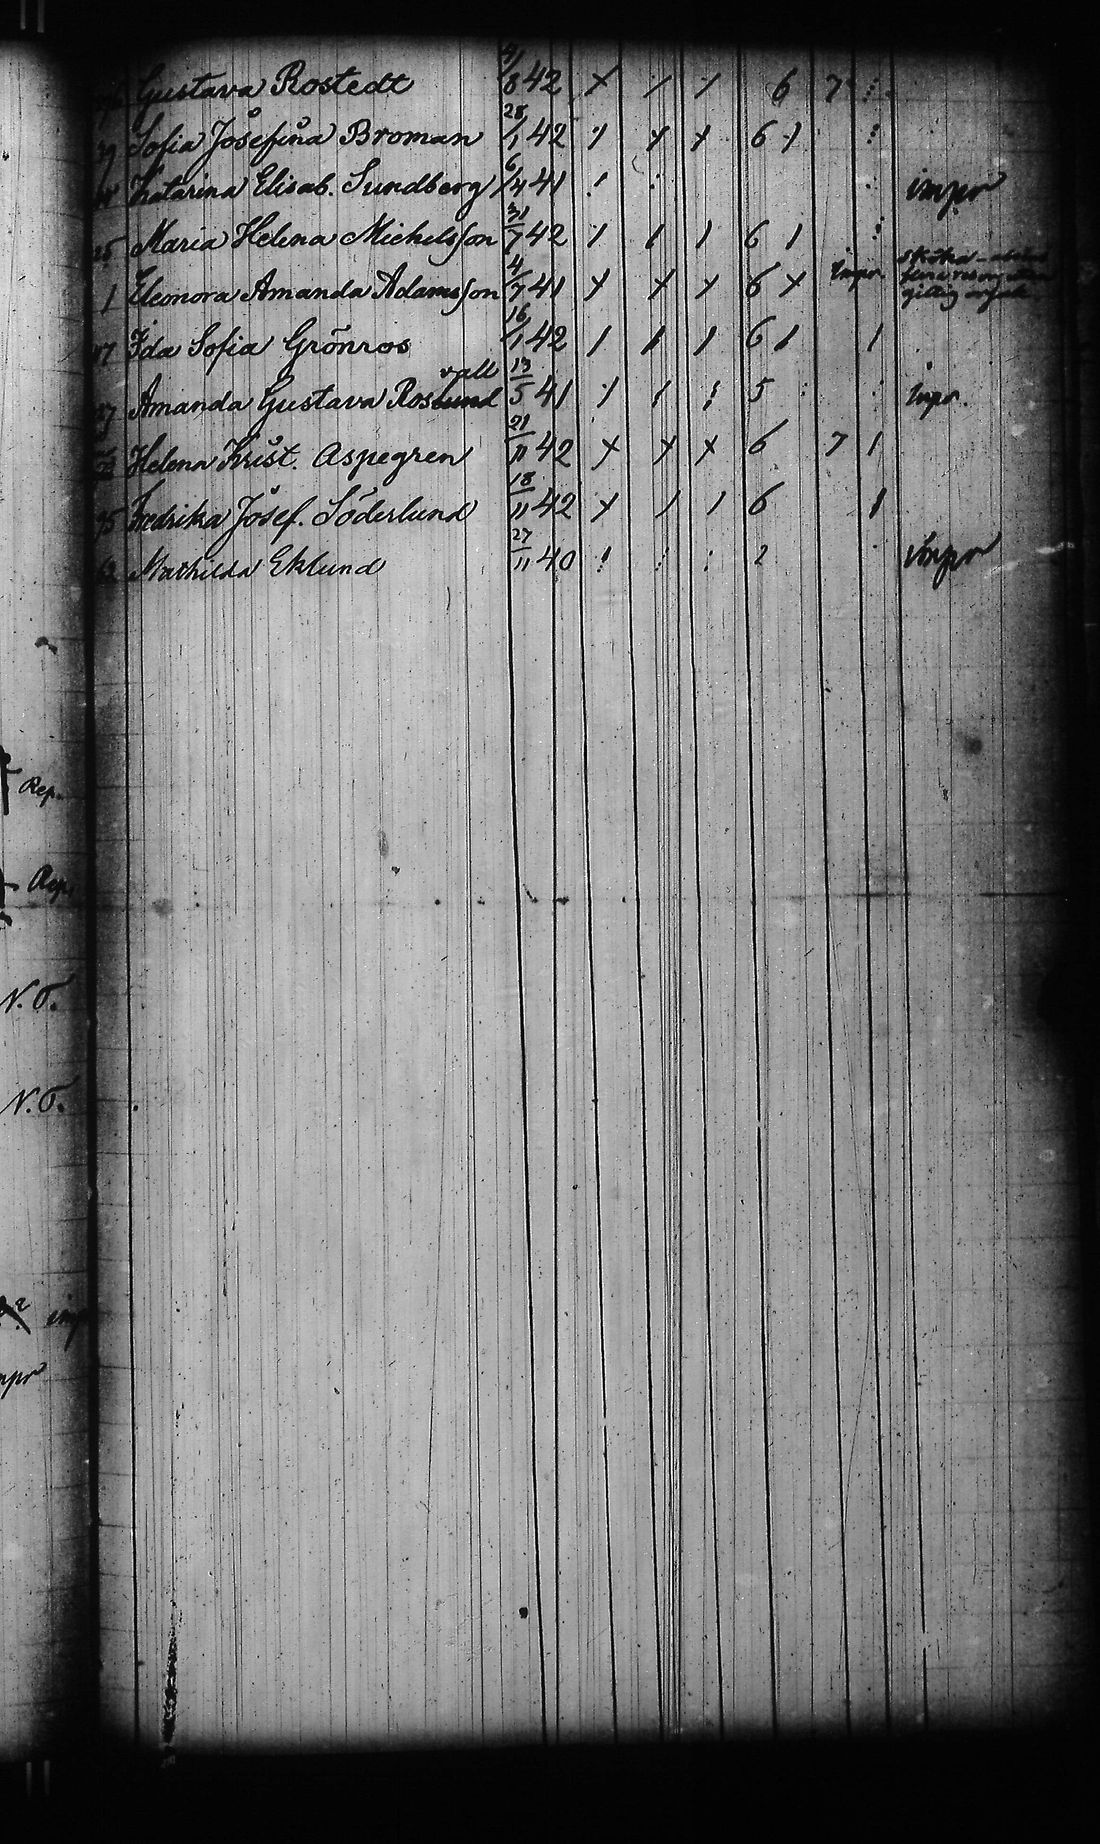 Gustava Rostedt 4/8 42 x / / 6 7
29 Sofia Josefina Broman 28/1 42 x x x 6 1
Katarina Elisab. Sundberg 6/4 41 impr
25 Maria Helena Michelsson 31/7 42 1 1 1 6 1
1 Eleonora Amanda Adamsson 4/7 41 x x x 6 x impr
17 Ida Sofia Grönros 16/1 42 1 1 1 6 1 1
vall
27 Amanda Gustava Roslund 13/5 41 5 impr.
Helena Krist. Aspegren 21/11 42 x x x 6 7 1
95 Fredrika Josef. Söderlund 18/11 42 x 1 1 6 1
Mathilda Eklund 27/11 40 2 impr
Rep.
Rep.
N.O.
N.O.